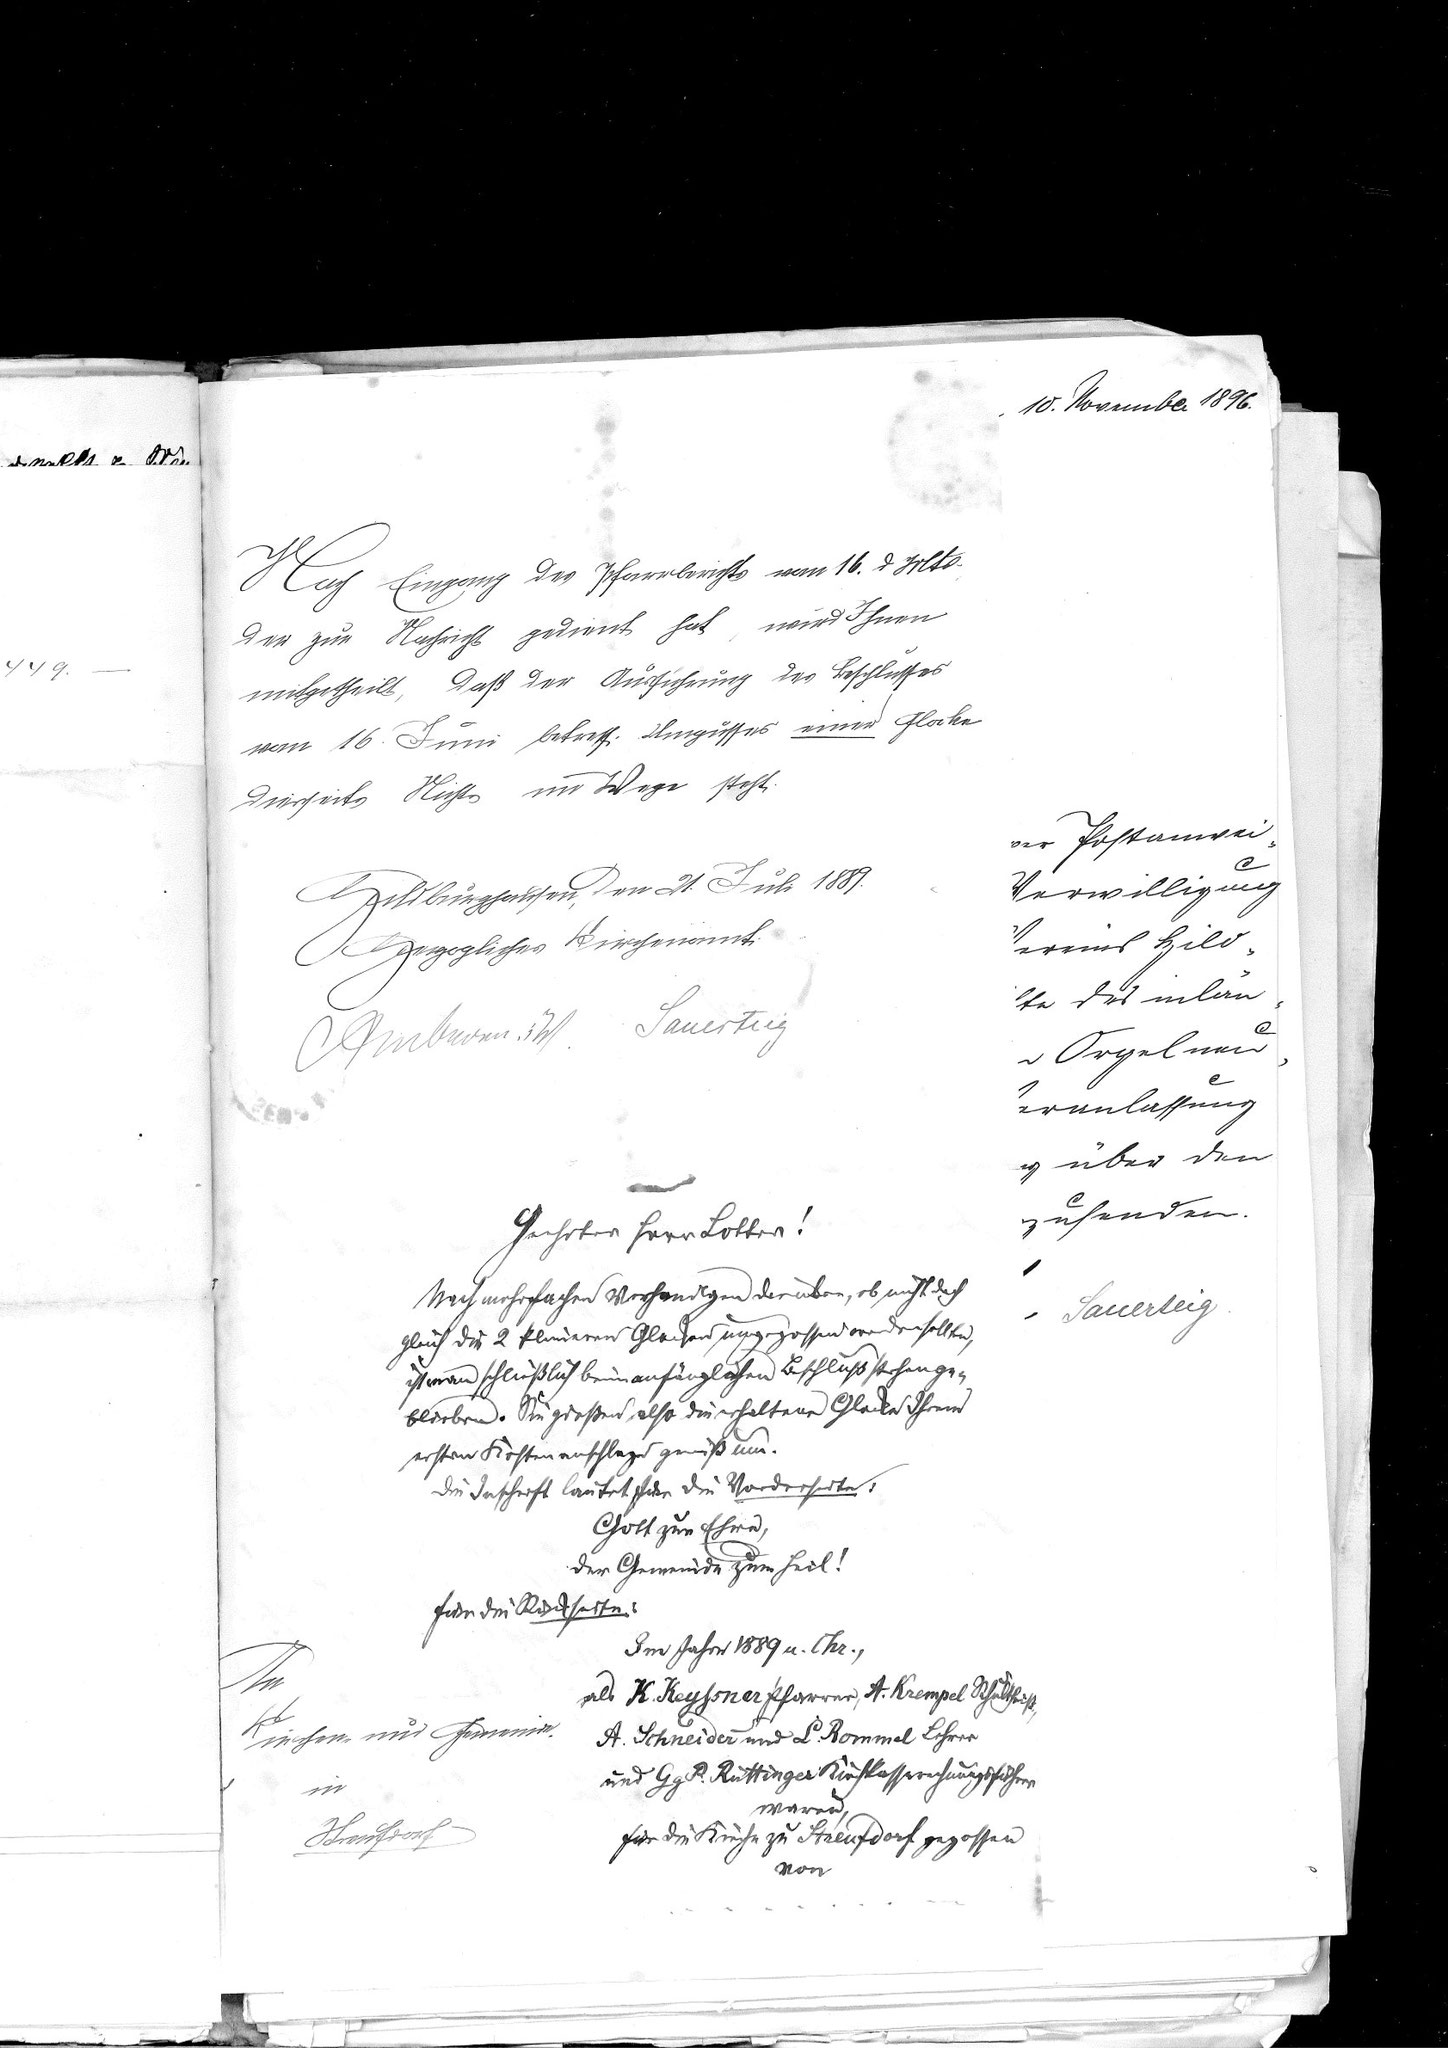 449. —
10. November 1896.
Nach Eingang des Pfarrberichts vom 16. d Mts.
der zur Nachricht gedient hat, wird Ihnen
mitgetheilt, daß der Ausführung des Beschlusses
vom 16. Juni betreff. Umgusses einer Glocke
dierseits Nichts im Wege steht.
Hildburghausen, den 21. Juli 1889.
Herzogliches Kirchenamt.
Sauerteig
Geehrter Herr Lotter!
Nach mehrfachen Verhandlgen darüber, ob nicht doch
gleich die 2 kleineren Glocken umgegossen werden sollten,
ist man schließlich beim anfänglichen Beschluß stehen ge-
blieben. Sie gießen also die erhaltene Glocke Ihrem
ersten Kostenanschlage gemäß um.
Die Inschrift lautet für die Vorderseite:
Gott zur Ehre,
der Gemeinde zum Heil!
für die Rückseite:
Im Jahre 1889 n. Chr.,
als K. Keyßner Pfarrer, A. Krempel Schultheiß,
A. Schneider und L. Rommel Lehrer
und Gg P. Rüttinger Kirchkassrechnungsführer
waren,
für die Kirche zu Streufdorf gegossen
von
An
Kirchen- und Gemeinde.
in
Streufdorf
ver Postanwei-
Verwilligung
Vereins Hild-
te des inlän-
n Orgelneu-
Veranlassung
g über den
zusenden.
Sauerteig.